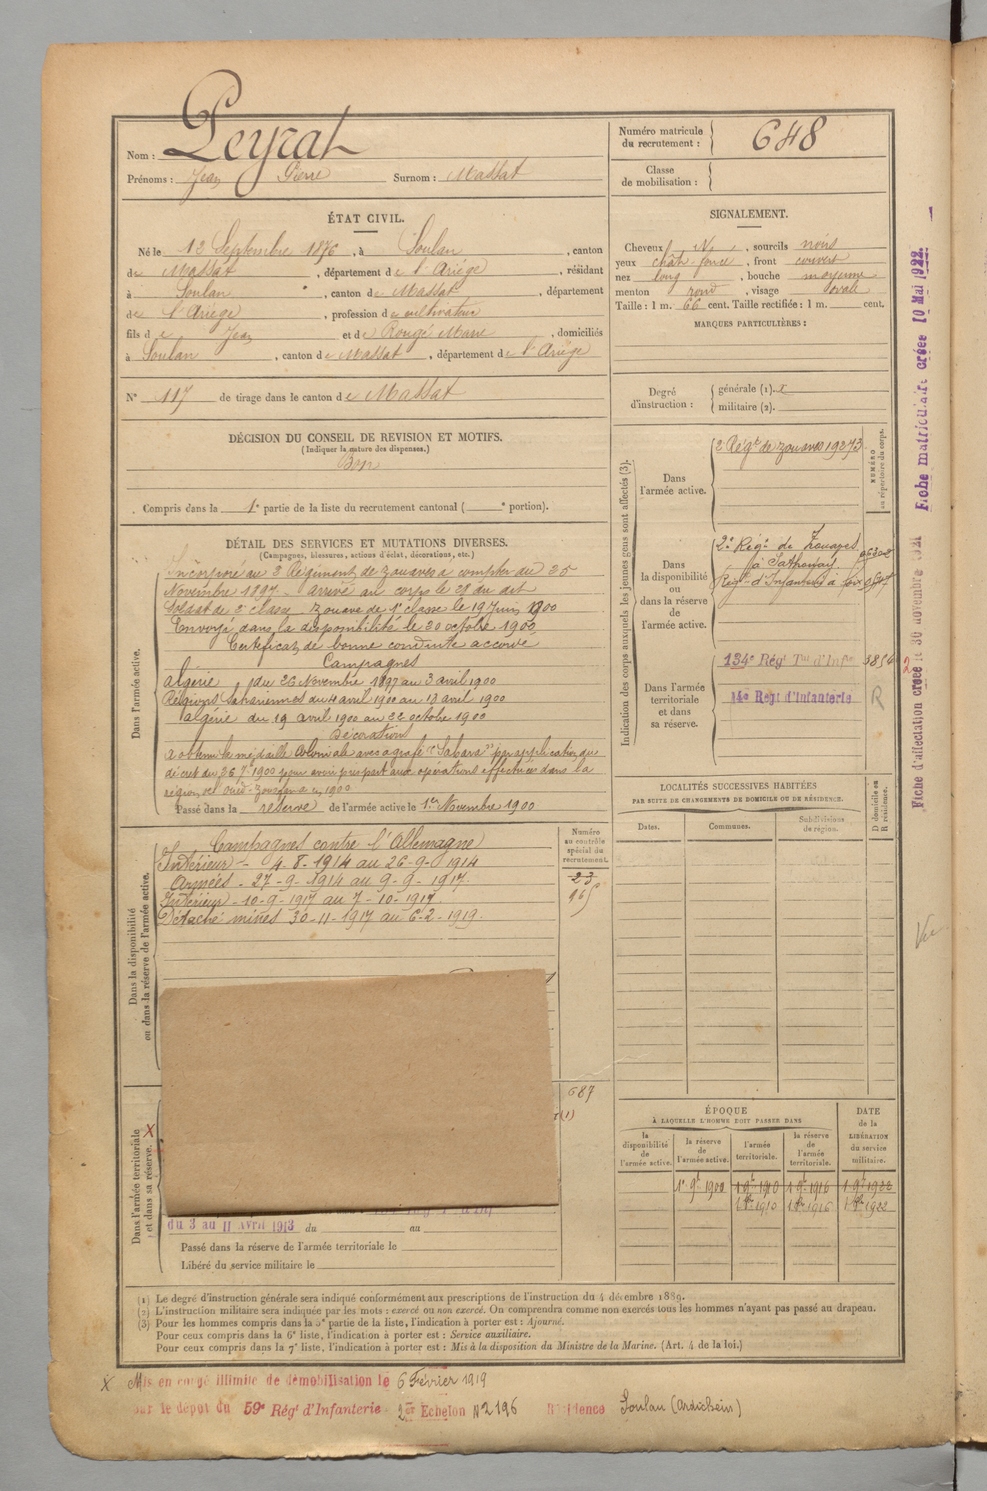 Nom : Peyrat
Prénoms : Jean Pierre Surnom : Massat
Numéro matricule
du recrutement : 648
Classe
de mobilisation :
ÉTAT CIVIL.
Né le 12 Septembre 1876, à Soulan, canton
de Massat, département de l'Ariège, résidant
à Soulan, canton de Massat, département
de l'Ariège, profession de cultivateur
fils de Jean et de Rougé Marie, domiciliés
à Soulan, canton de Massat, département de l'Ariège
N° 117 de tirage dans le canton de Massat
SIGNALEMENT.
Cheveux Ns, sourcils noirs
yeux chât-foncé, front couvert
nez long, bouche moyenne
menton rond, visage ovale
Taille : 1 m. 66 cent. Taille rectifiée : 1 m. cent.
MARQUES PARTICULIÈRES :
Degré
d'instruction :
générale (1). 
militaire (2).
DÉCISION DU CONSEIL DE REVISION ET MOTIFS.
(Indiquer la nature des dispenses.)
Bon
Compris dans la 1e partie de la liste du recrutement cantonal ( e portion).
DÉTAIL DES SERVICES ET MUTATIONS DIVERSES.
(Campagnes, blessures, actions d'éclat, décorations, etc.)
Dans l'armée active.
Incorporé au 2 Régiment de zouaves à compter du 25
Novembre 1897. Arrivé au corps le 28 du dit
Soldat de 2e classe. Zouave de 1e classe le 19 Juin 1900
Envoyé dans la disponibilité le 20 octobre 1900
Certificat de bonne conduite accordé
Campagnes
Algérie du 26 Novembre 1897 au 3 avril 1900
Régions Sahariennes du 4 avril 1900 au 18 avril 1900
Algérie du 19 avril 1900 au 22 octobre 1900
Décoration
A obtenu la médaille Coloniale avec agrafe "Sahara" par application du
décret du 26 7e 1900 pour avoir pris part aux opérations effectuées dans la
région de l'oued-Zousfana en 1900
Passé dans la réserve de l'armée active le 1er Novembre 1900
Dans la disponibilité
ou dans la réserve de l'armée active.
Campagnes contre l'Allemagne
Intérieur - 4-8-1914 au 26-9-1914
Armées - 27-9-1914 au 9-9-1917
Intérieur - 10-9-1917 au 7-10-1917
Détaché mines 30-11-1917 au 6-2-1919.
Numéro
au contrôle
spécial du
recrutement.
23
965
687
(1)
Dans l'armée territoriale
et dans sa réserve.
X
du 3 au 11 Avril 1913 du au
Passé dans la réserve de l'armée territoriale le
Libéré du service militaire le
Indication des corps auxquels les jeunes gens sont affectés (3).
NUMÉRO
au répertoire du corps.
Dans
l'armée active.
2e Régt de zouaves 19273
Dans
la disponibilité
ou
dans la réserve
de
l'armée active.
2e Régt de Zouaves
à Sathonay
Régt d'Infanterie à Foix
Dans l'armée
territoriale
et dans
sa réserve.
134e Régt Tal d'Infie
14e Régt d'Infanterie R
LOCALITÉS SUCCESSIVES HABITÉES
PAR SUITE DE CHANGEMENTS DE DOMICILE OU DE RÉSIDENCE.
Dates. Communes. Subdivisions
de région.
D domicile ou
R résidence.
ÉPOQUE
À LAQUELLE L'HOMME DOIT PASSER DANS
la
disponibilité
de
l'armée active.
la réserve
de
l'armée active.
l'armée
territoriale.
la réserve
de
l'armée
territoriale.
DATE
de la
LIBÉRATION
du service
militaire.
1er 9e 1900 1 9e 1910 1 9e 1916 1 9e 1922
1 8re 1910 1 8re 1916 1 8re 1922
(1) Le degré d'instruction générale sera indiqué conformément aux prescriptions de l'instruction du 4 décembre 1889.
(2) L'instruction militaire sera indiquée par les mots : exercé ou non exercé. On comprendra comme non exercés tous les hommes n'ayant pas passé au drapeau.
(3) Pour les hommes compris dans la 5e partie de la liste, l'indication à porter est : Ajourné.
Pour ceux compris dans la 6e liste, l'indication à porter est : Service auxiliaire.
Pour ceux compris dans la 7e liste, l'indication à porter est : Mis à la disposition du Ministre de la Marine. (Art. 4 de la loi.)
X Mis en congé illimité de démobilisation le 6 Février 1919
par le dépôt du 59e Régt d'Infanterie 2er Echelon N 2196 Résidence Soulan (Ardichein)
Fiche d'affectation créée le 30 novembre 1921
Fiche matriculaire créée 10 Mai 1922.
Vu